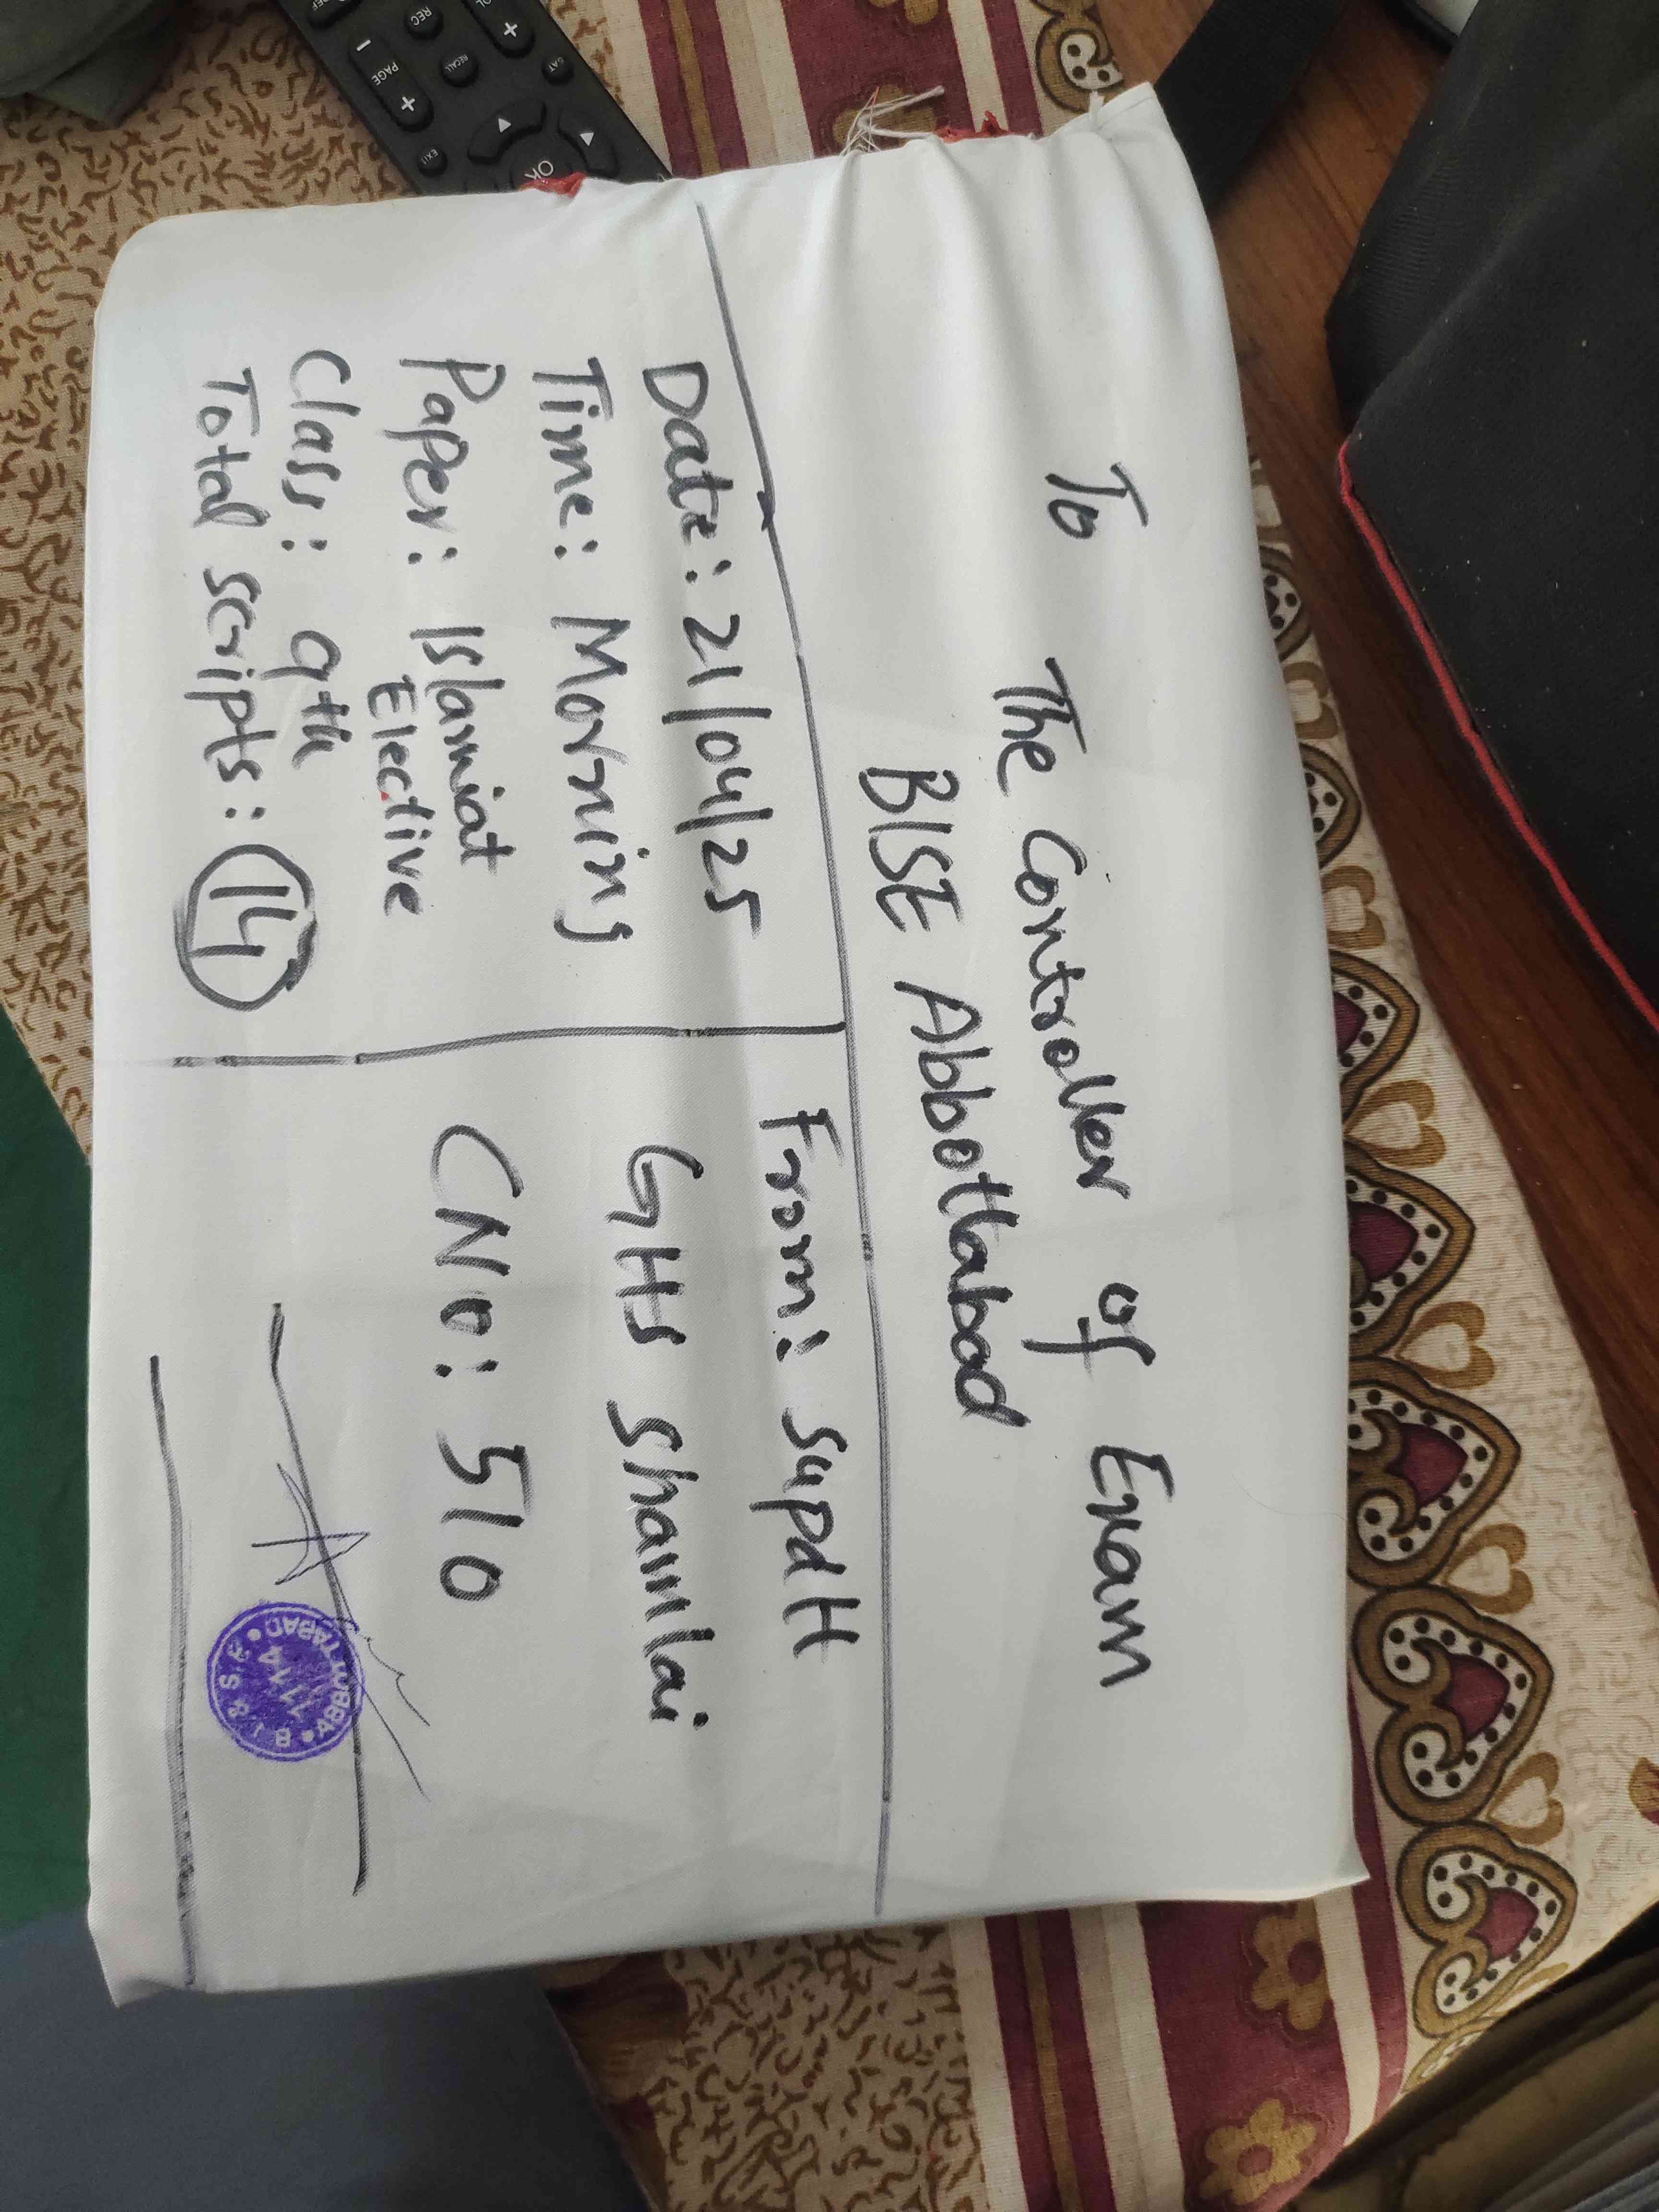 To
The Controller of Exam
BISE Abbottabad
Date: 21/04/25
Time: Morning
Paper: Islamiat
Elective
Class: 9th
Total scripts: 14
From: Supdtt
GHS Shamlai
CNo: 510
B I & S E
ABBOTTABAD
1114
PAGE
+
-
REC
RECALL
EXIT
OK
SAT
+